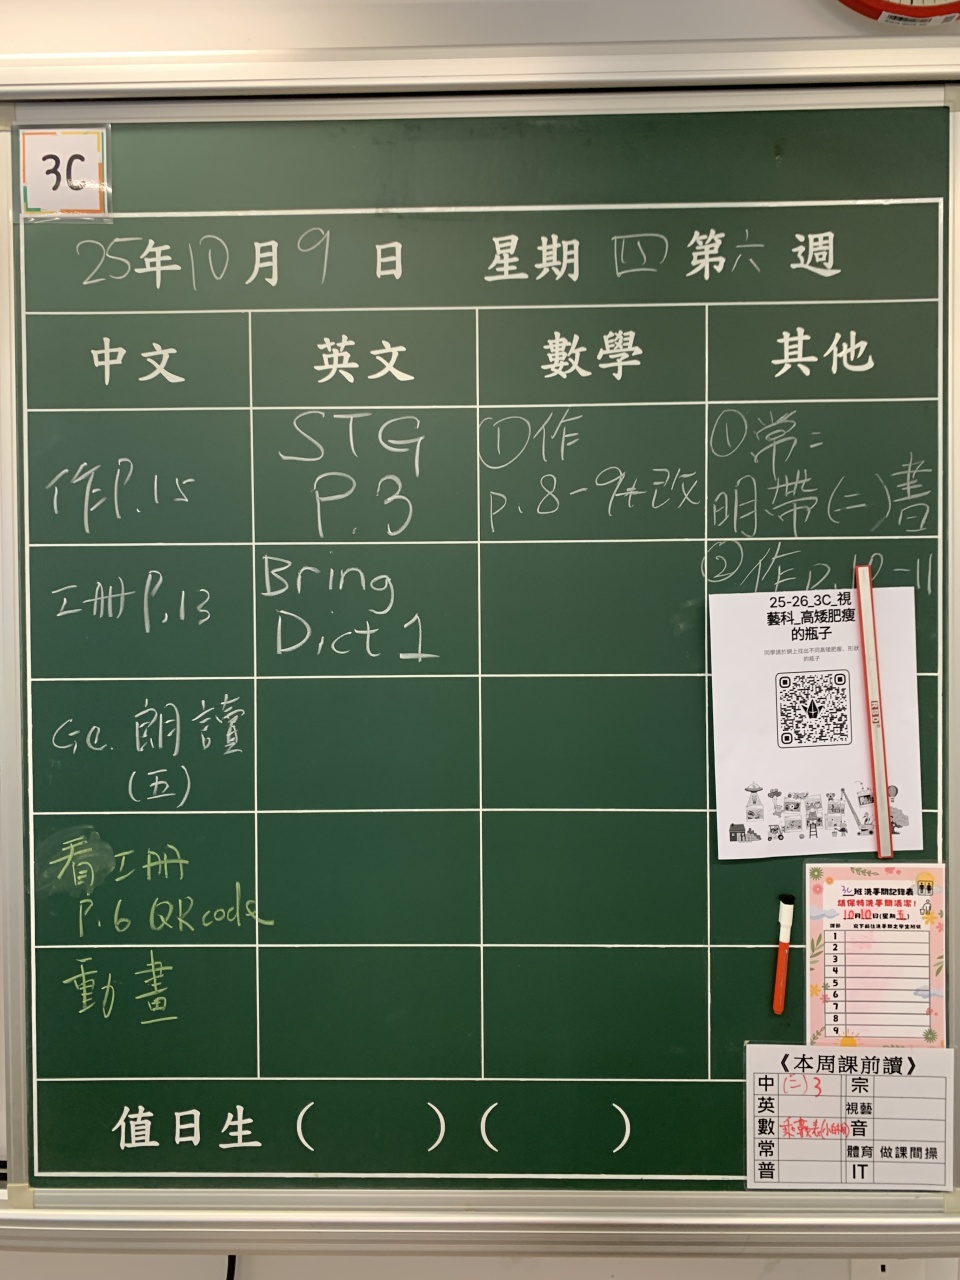 3C
25年10月9日 星期四第六週
中文 英文 數學 其他
作P.15
工冊P.13
Gc. 朗讀
(五)
看工冊
P.6 QR code
動畫
STG
P.3
Bring
Dict 1
①作
p.8-9+改
①常:
明帶(二)書
②作
25-26_3C_視
藝科_高矮肥瘦
的瓶子
的瓶子
3C班洗手間記錄表
請保持洗手間清潔!
10月10日(星期五)
1
2
3
4
5
6
7
8
9
《本周課前讀》
中 (三)3 宗
英 視藝
數 音
常 體育 做課間操
普 IT
值日生( )( )